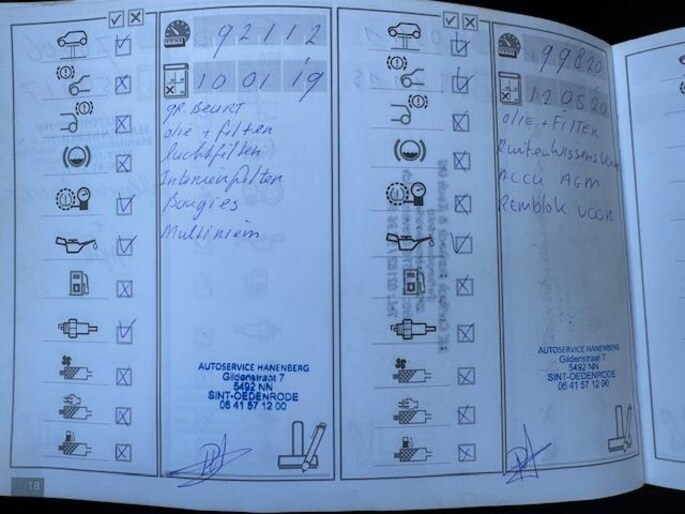 92112
10 01 19
gr. Beurt
olie + filter
luchtfilter
Interieurfilter
Bougies
Multiriem
AUTOSERVICE HANENBERG
Gildenstraat 7
5492 NN
SINT-OEDENRODE
06 41 57 12 00
18
99820
12 05 20
olie + Filter
Ruitenwissers
Accu AGM
Remblok voor
AUTOSERVICE HANENBERG
Gildenstraat 7
5492 NN
SINT-OEDENRODE
06 41 57 12 00